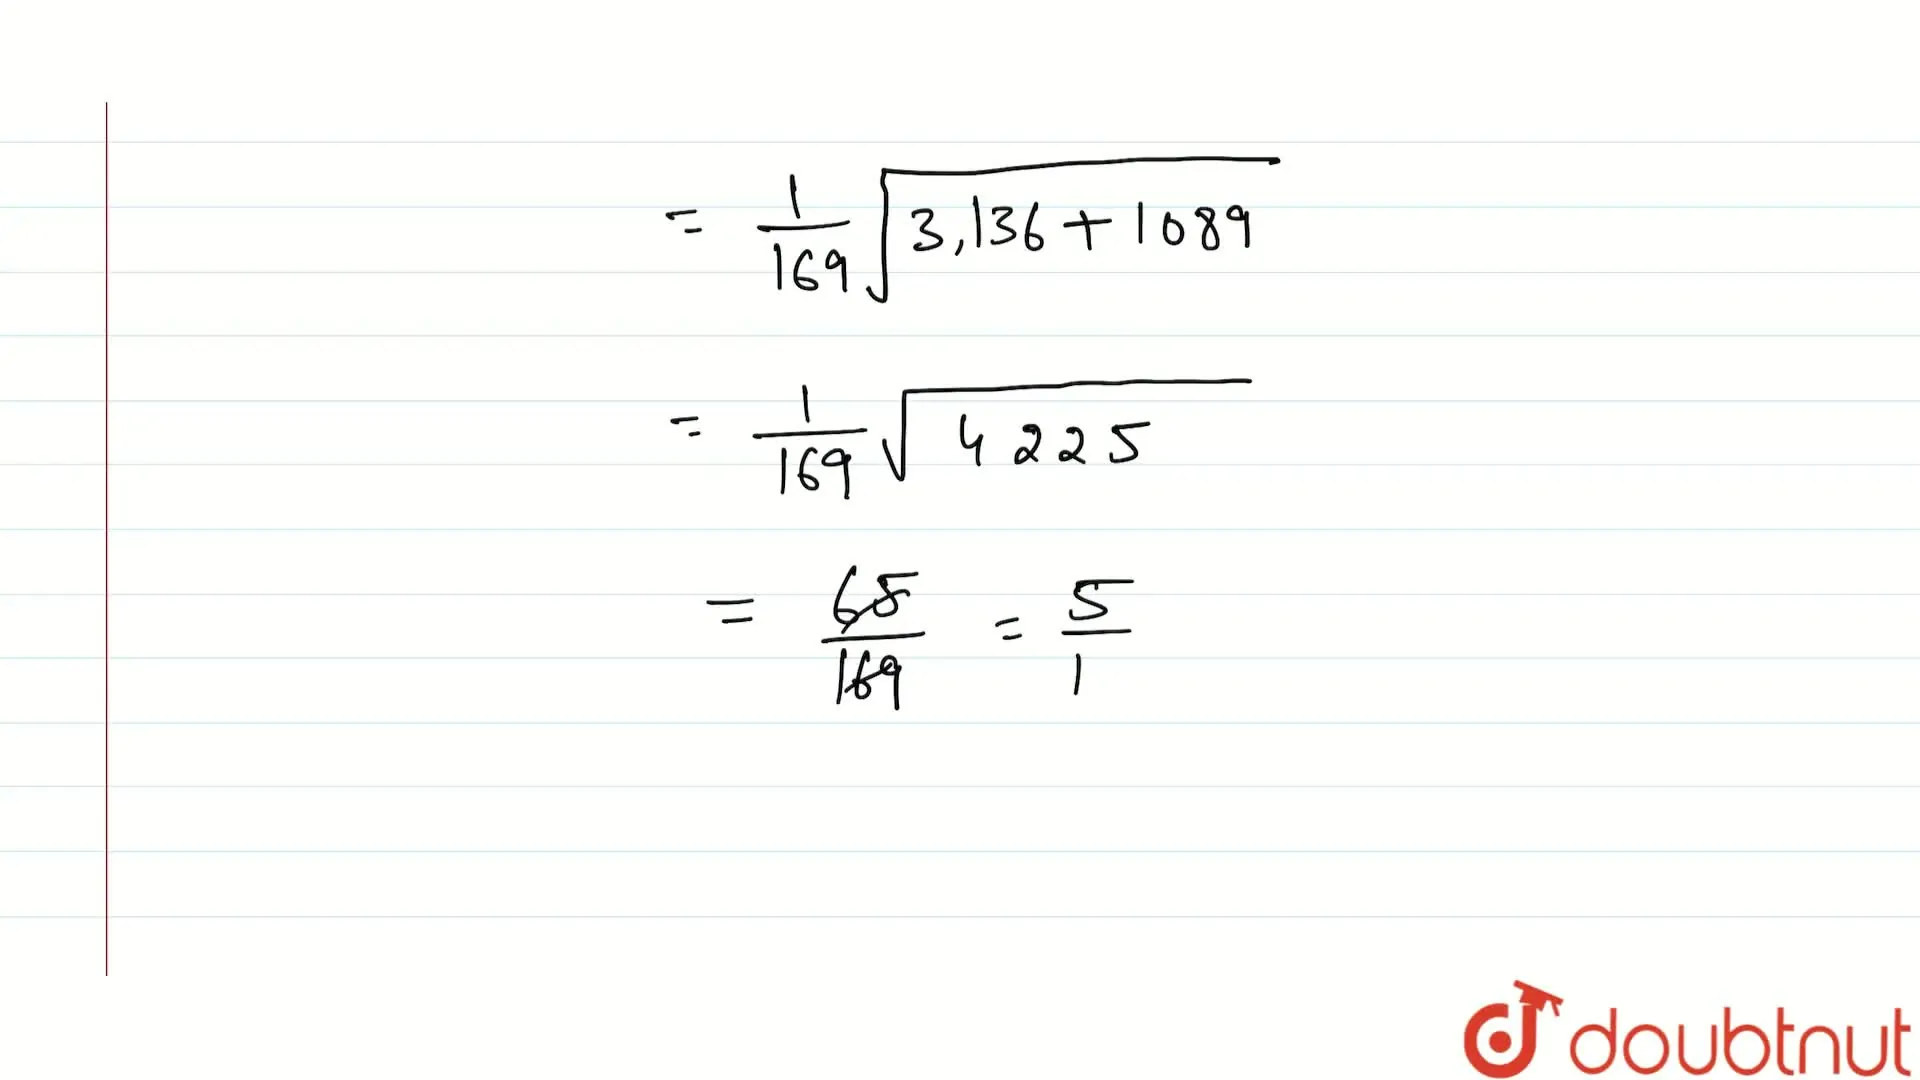 = 1/169 √3,136+1089
= 1/169 √4225
= 65/169 = 5/1
doubtnut